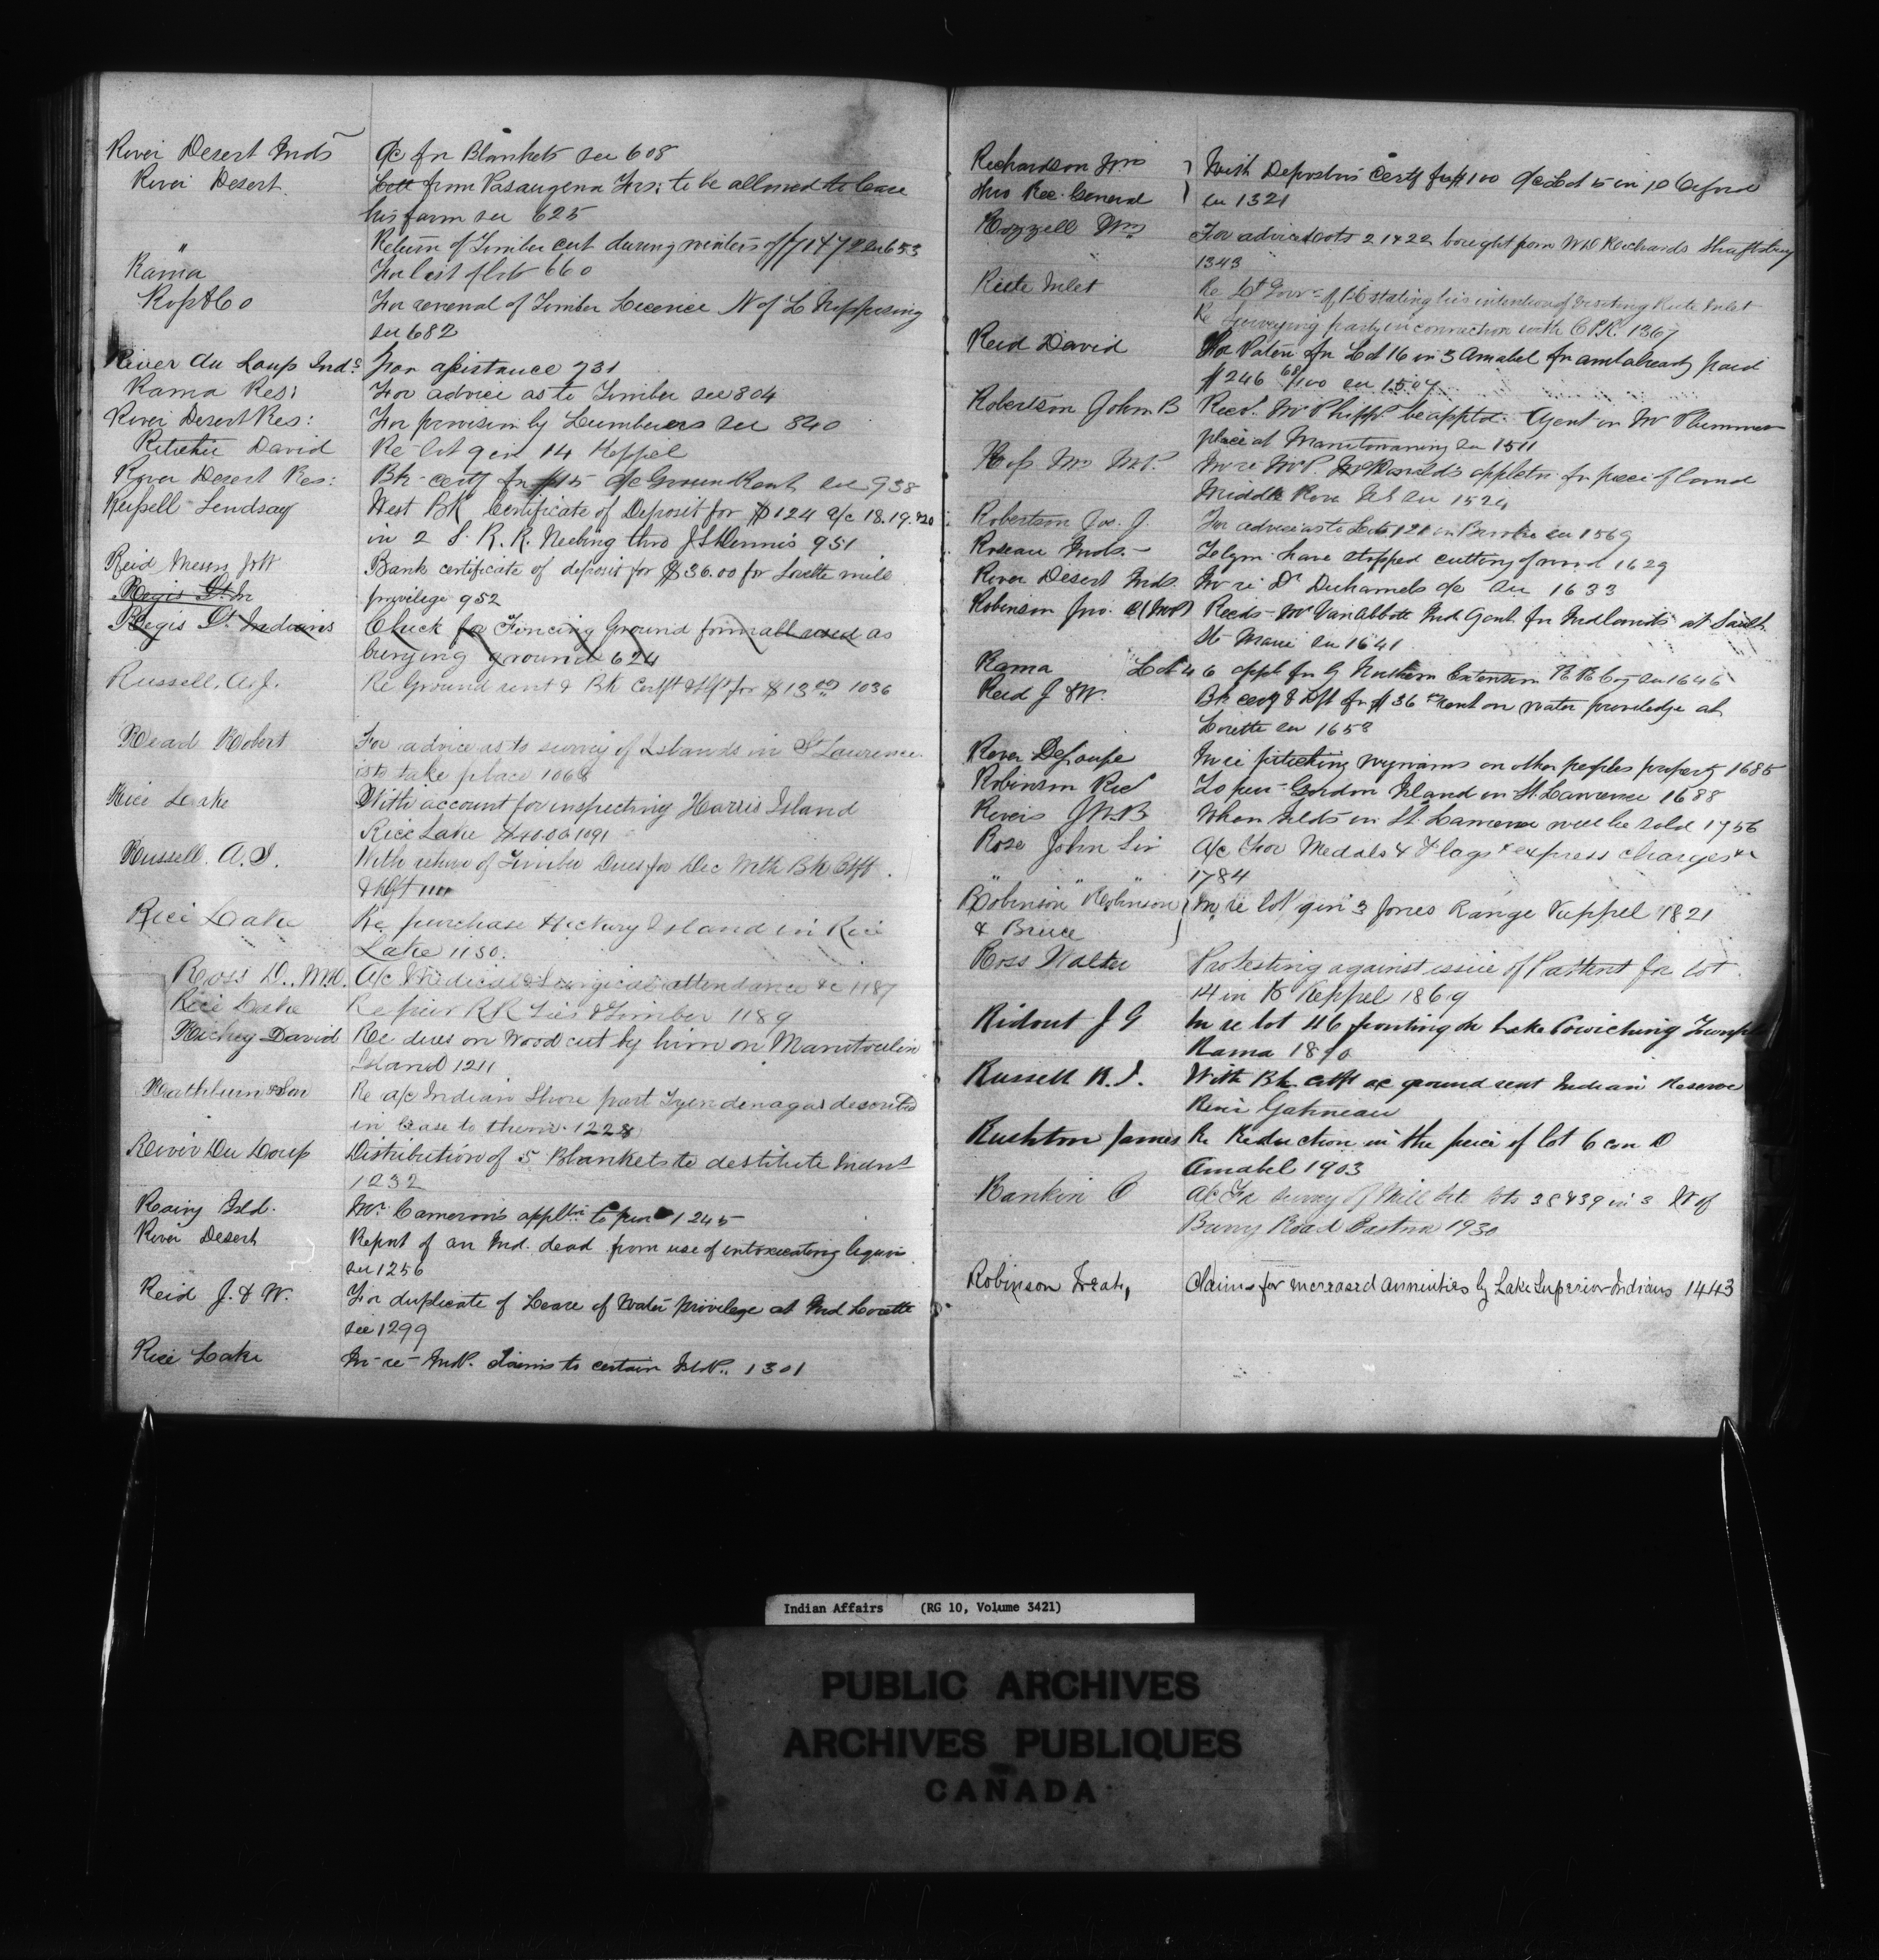 River Desert Inds a/c for Blankets see 608
River Desert. from Pasaugena Frs: to be allowed to lease
his farm see 625
" Return of Timber cut during winters of 71 & 72 see 653
Rama For list of lots 660
Ross & Co For renewal of Timber Licence N of L Nippising
see 682
River du Loup Inds For assistance 731
Rama Res: For advice as to Timber see 804
River Desert Res: For provision by Lumberers see 840
Ritchie David Re lot 9 in 14 Keppel
River Desert Res: Bk certf for $15 a/c Ground Rent see 938
Russell Lindsay West BK Certificate of Deposit for $124 a/c 18.19.&20
in 2 S. R. R. Neebing thro J S Dennis 951
Reid Messrs J & W Bank certificate of deposit for $36.00 for Lorette mill
privilege 952
Regis St In
Regis St Indians Check for Fencing Ground formally used as
burying ground 624
Russell. A. J. Re Ground rent & Bk Certft & Dft for $13 00 1036
Read Robert For advice as to survey of Islands in St Lawrence
is to take place 1068
Rice Lake With account for inspecting Harris Island
Rice Lake $40.00 1091
Russell. A. J. With return of Timber Dues for Dec With Bk Ctft
& Dft 1111
Rice Lake Re purchase Hickory Island in Rice
Lake 1150.
Ross D., M.D. A/c Medical & Surgical attendance &c 1187
Rice Lake Re pine RR Ties & Timber 1189
Richey David Re dues on Wood cut by him on Manitoulin
Island 1211
Rathburn & Son Re a/c Indian Shore part Tyendenaga as described
in lease to them. 1228
River Du Loup Distribution of 5 Blankets to destitute Indns
1232
Rainy Isld. Mr. Cameron's appltn to pur 1245
River Desert Report of an Ind. dead from use of intoxicating liquor
see 1256
Reid J. & W. For duplicate of Lease of Water privilege at Ind Lorette
see 1299
Rice Lake In-re- Ind. Claims to certain Isld. 1301
Richardson Wm With Depositors Certf for $100 a/c Lot 5 in 10 Oxford
thro Rec. General see 1321
Rozzell Wm For advice Lots 21 & 22 bought from Wm Richards Shaftsbury
1343
Bute Inlet Re Lt Govr of B.C stating his intention of visiting Bute Inlet
Re surveying party in connection with C.P.R. 1367
Reid David For Patent for Lot 16 in 3 Amabel for amt already paid
$246 68/100 see 1507
Robertson John B Recd. Mr Phipps be apptd. Agent in Mr Plummer
place at Manitowaning see 1511
Ross Mr M.P. In re Mr P. McDonald's appltn for piece of land
Middle River N.S. see 1524
Robertson Jos. J. For advice as to Lots 121 in Brooke see 1569
Roseau Inds. - Telgm. have stopped cutting of wood 1629
River Desert Inds. In re Dr Duhamels a/c see 1633
Robinson Jno. (M.P) Recds- Mr VanAbbott Ind Agent. for Indlands at Sault
Ste Marie see 1641
Rama Lot 46 appl. for by Northern Extension R R Coy see 1646
Reid J & W. Bk certf & Dft for $36 rent on water privelidge at
Lorette see 1653
River DeLoupe In re pitching wigwams on other peoples property 1685
Robinson Rid To pur- Gordon Island in St. Lawrence 1688
Rivers J W B When Islds in St. Lawrence will be sold 1756
Rose John Sir A/c For Medals & Flags & express charges &c
1784
Robinson Robinson In re lot 9 in 3 Jones Range Keppel 1821
& Bruce
Ross Walter Protesting against issue of Pattent for lot
14 in K Keppel 1869
Ridout J G In re lot 46 fronting on Lake Cowiching Township
Rama 1890
Russell R. J. With Bk ctft a/c ground rent Indian Reserve
River Gatineau
Rushton James Re Reduction in the price of lot 6 con D
Amabel 1903
Rankin C A/c For survey of Mill Site lots 38 & 39 in 3 W of
Barry Road Eastnor 1930
Robinson Treaty, Claims for increased annuities by Lake Superior Indians 1443
Indian Affairs (RG 10, Volume 3421)
PUBLIC ARCHIVES
ARCHIVES PUBLIQUES
CANADA